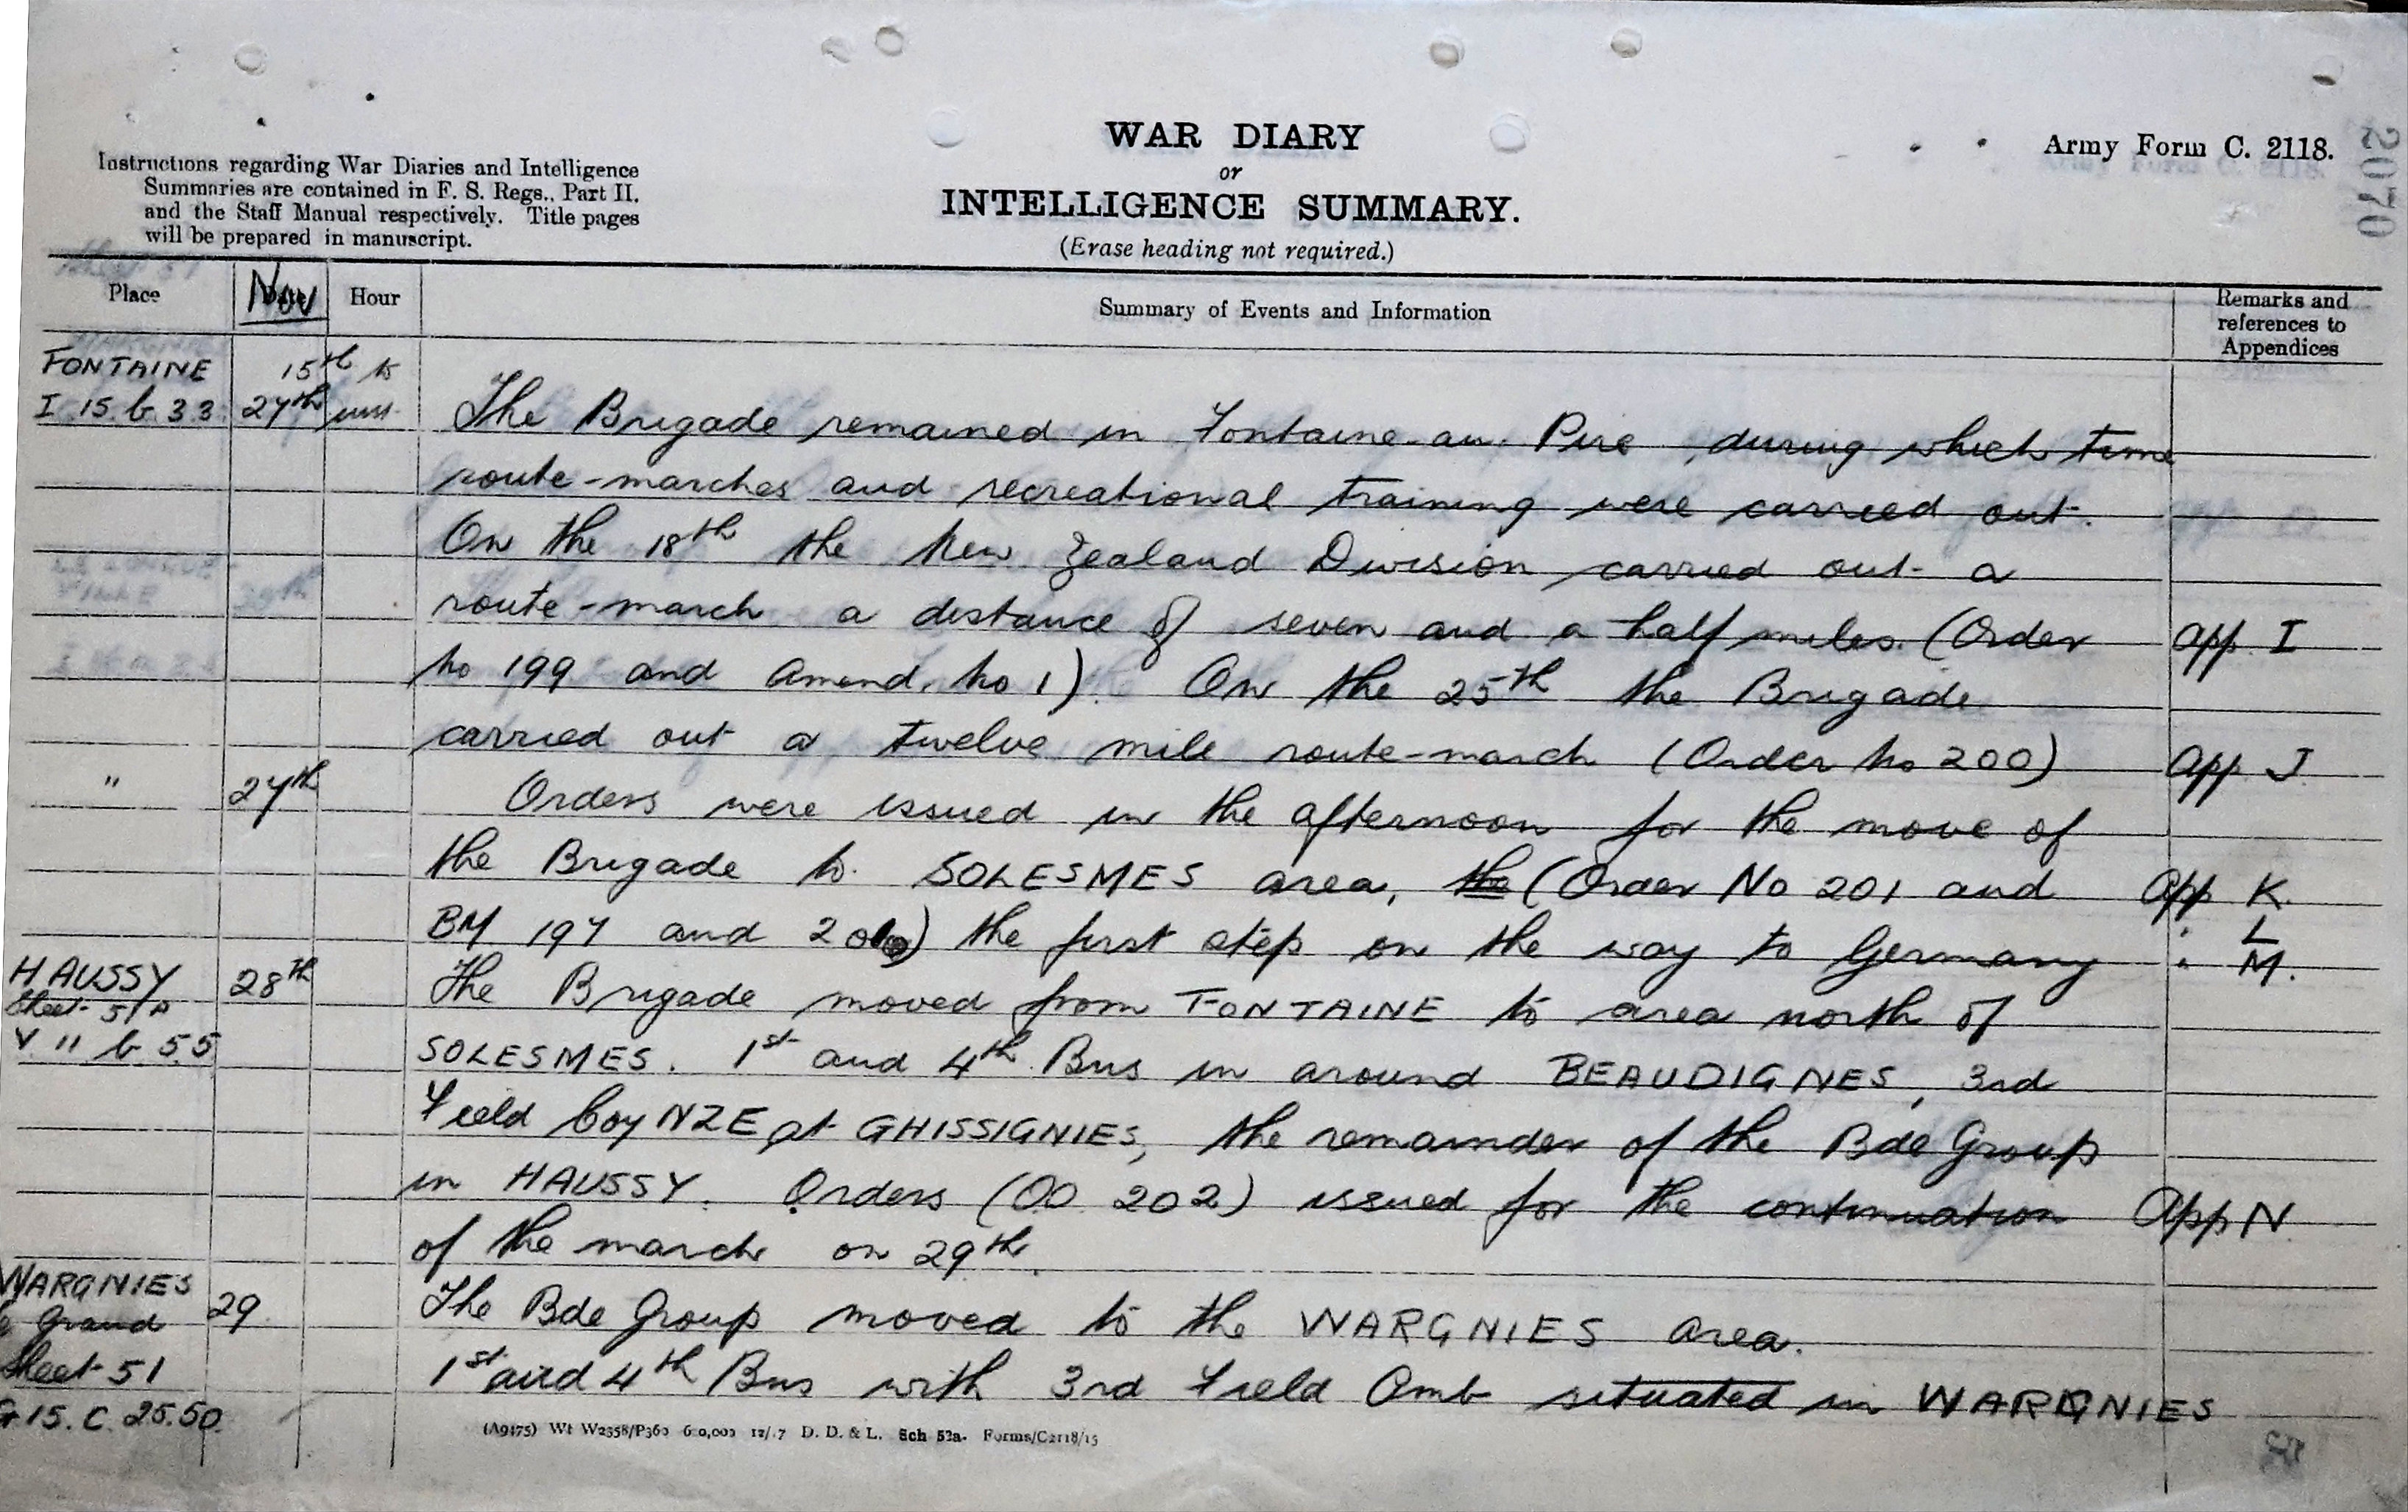 Army Form C. 2118.
2070
WAR DIARY
or
INTELLIGENCE SUMMARY.
(Erase heading not required.)
Instructions regarding War Diaries and Intelligence
Summaries are contained in F. S. Regs., Part II.
and the Staff Manual respectively. Title pages
will be prepared in manuscript.
Place Nov Hour Summary of Events and Information Remarks and
references to
Appendices
FONTAINE 15th to
I 15 b 33 27th inst. The Brigade remained in Fontaine-au-Pire, during which time
route-marches and recreational training were carried out.
On the 18th the New Zealand Division carried out a
route-march a distance of seven and a half miles. (Order app I
No 199 and Amend. No 1). On the 25th the Brigade
carried out a twelve mile route-march (Order No 200) app J
" 27th Orders were issued in the afternoon for the move of
the Brigade to SOLESMES area, the (Order No 201 and app K.
BM 197 and 200) the first step on the way to Germany " L
" M.
HAUSSY 28th The Brigade moved from FONTAINE to area north of
Sheet 51A
V 11 b 55 SOLESMES. 1st and 4th Bns in around BEAUDIGNES, 3rd
Field Coy NZE at GHISSIGNIES, the remainder of the Bde Group
in HAUSSY. Orders (OO 202) issued for the continuation App N.
of the march on 29th.
WARGNIES
Grand 29 The Bde Group moved to the WARGNIES area.
Sheet 51 1st and 4th Bns with 3rd Field Amb situated in WARGNIES
G 15. C. 25.50
(A9475) Wt W2358/P360 600,000 12/17 D. D. & L. Sch 52a. Forms/C2118/15